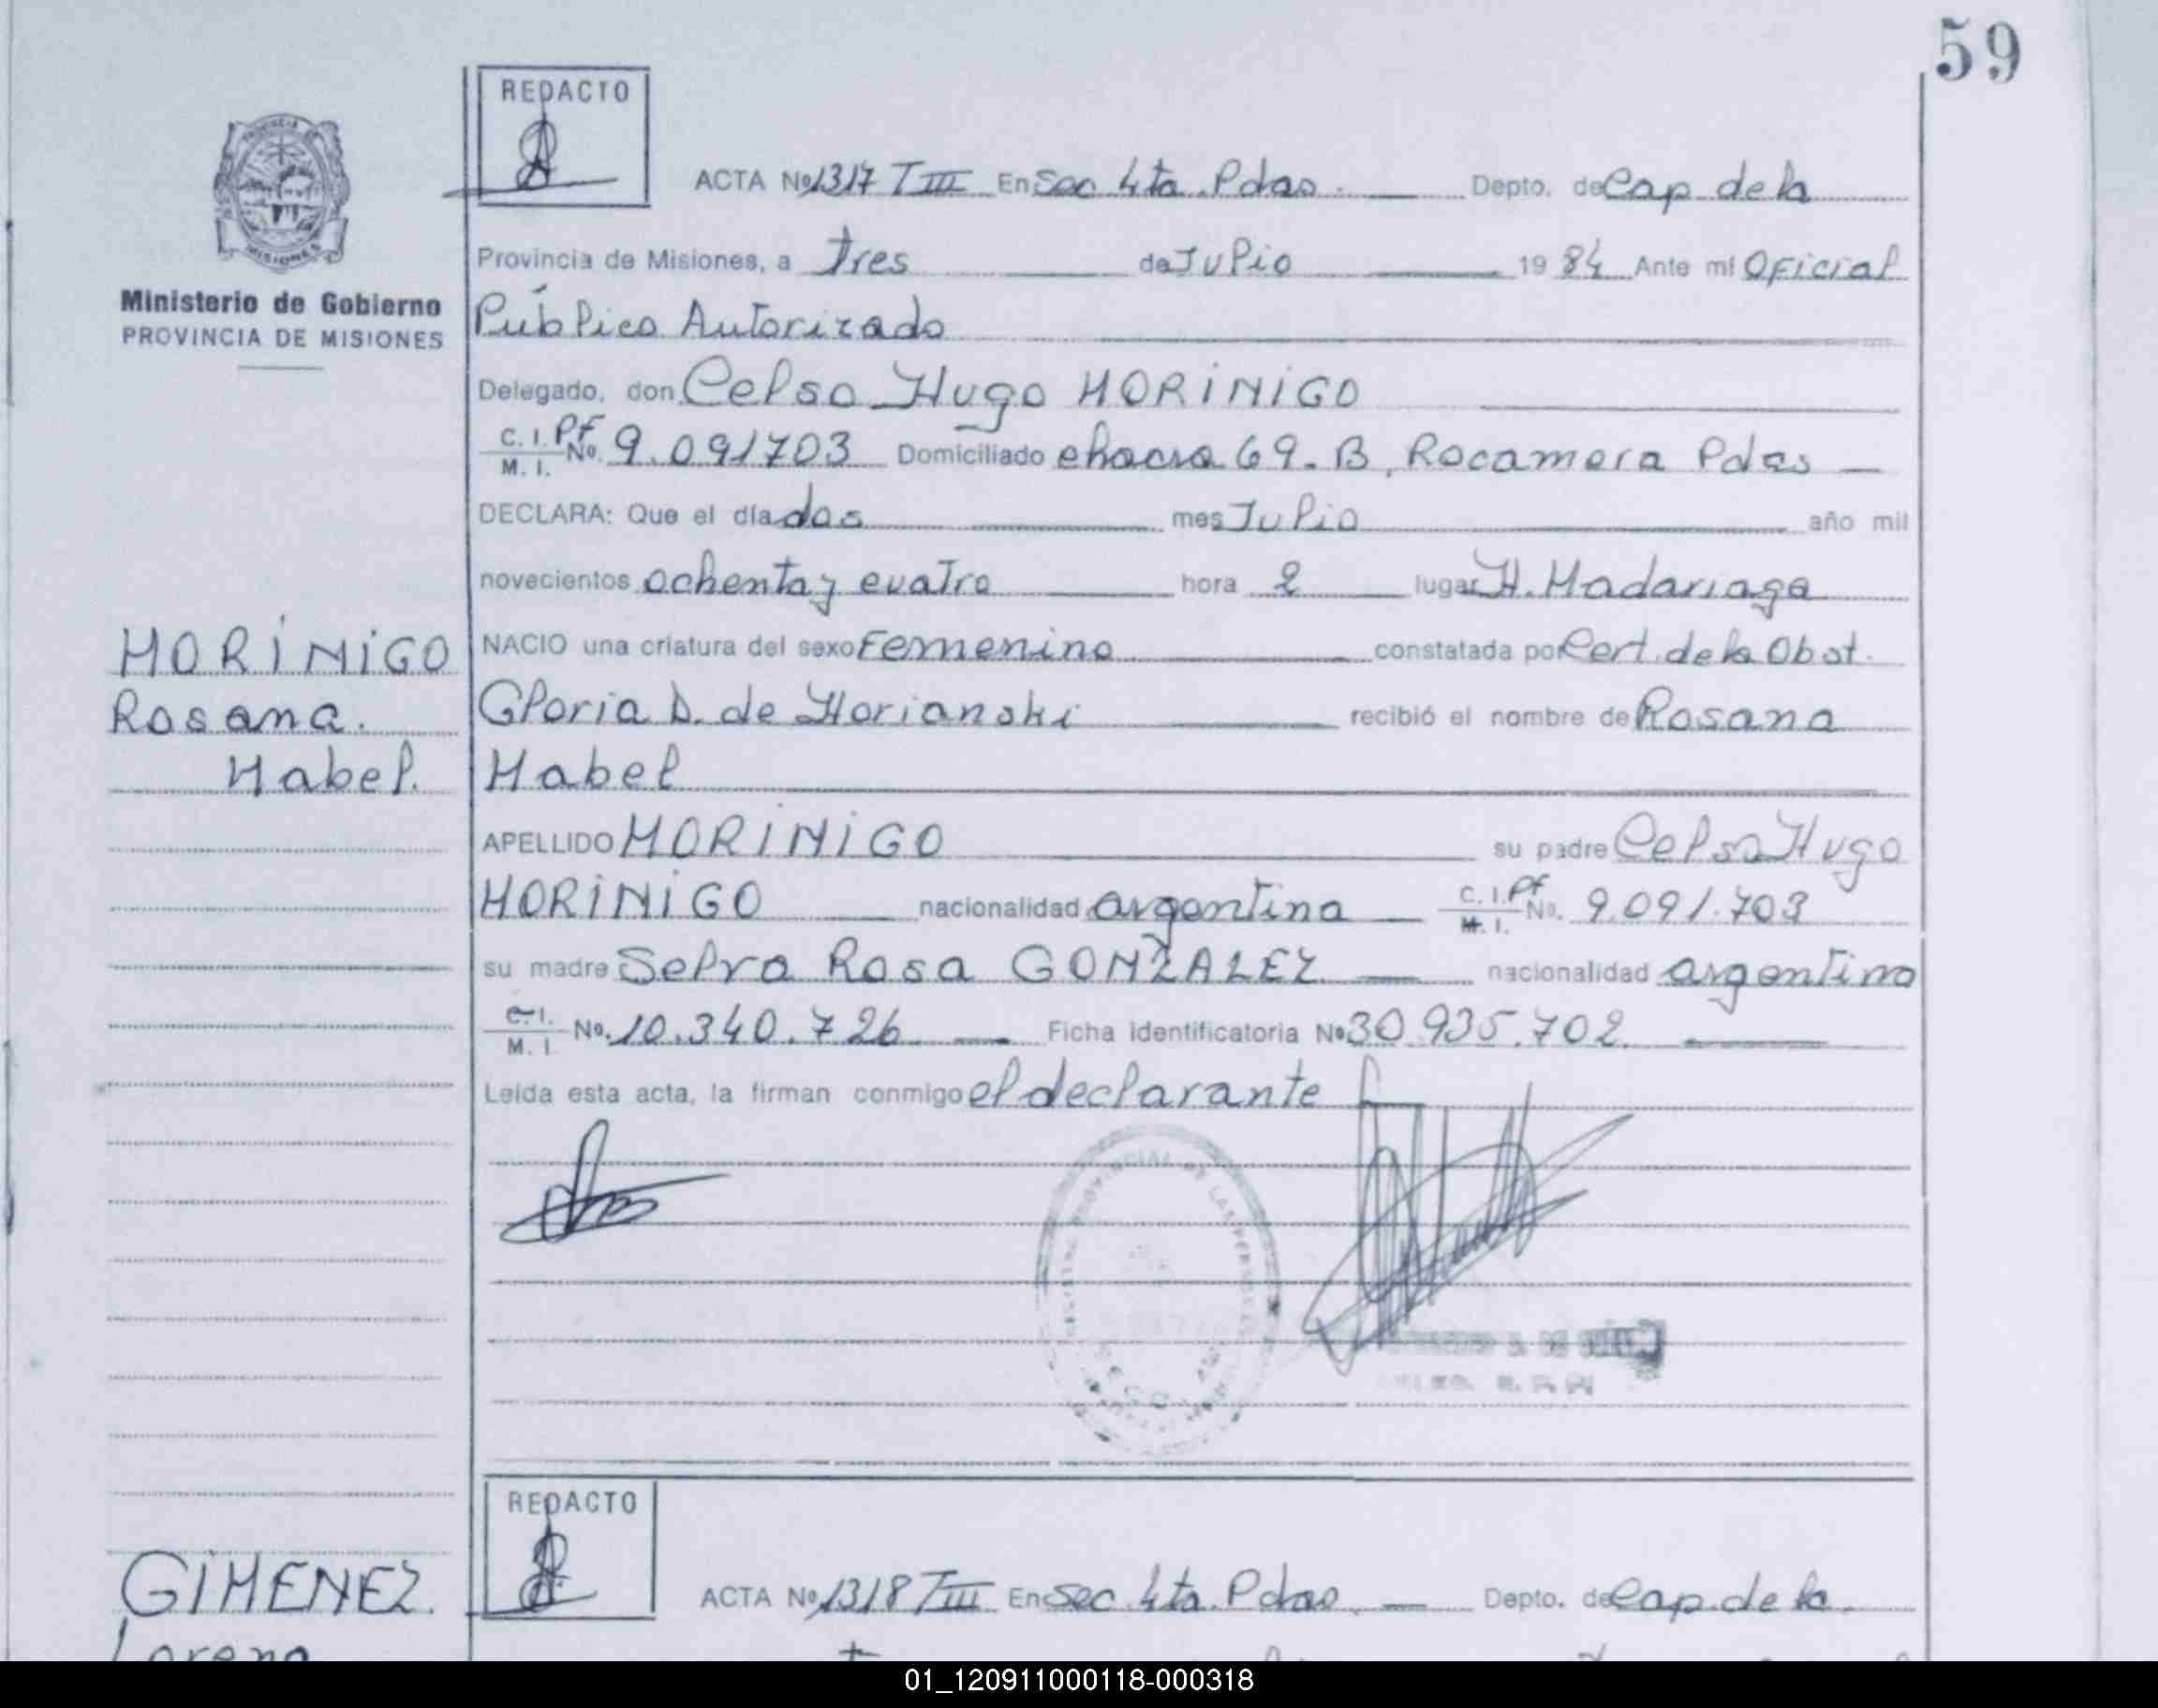 59
REDACTO
ACTA Nº 1317 T III En Sec 4ta. Pdas. Depto. de Cap. de la
Provincia de Misiones, a Tres de Julio 19 84 Ante mí Oficial
Ministerio de Gobierno
PROVINCIA DE MISIONES
Público Autorizado
Delegado, don Celso Hugo MORINIGO
C. I. Pf M. I. Nº. 9.091703 Domiciliado chacra 69-B, Rocamora Pdas
DECLARA: Que el día dos mes Julio año mil
novecientos ochenta y cuatro hora 2 lugar H. Madariaga
MORINIGO
Rosana.
Mabel.
NACIO una criatura del sexo Femenino constatada por Cert. de la Obst.
Gloria D. de recibió el nombre de Rosana
Mabel
APELLIDO MORINIGO su padre Celso Hugo
MORINIGO nacionalidad argentina C. I. Pf M. I. Nº. 9.091.703
su madre Selva Rosa GONZALEZ nacionalidad argentina
C. I. M. I. Nº. 10.340.726 Ficha identificatoria Nº 30.935.702.
Leída esta acta, la firman conmigo el declarante
REDACTO
GIMENEZ.
ACTA Nº 1318 T III En Sec. 4ta. Pdas. Depto. de Cap. de la.
Lorena
01_120911000118-000318